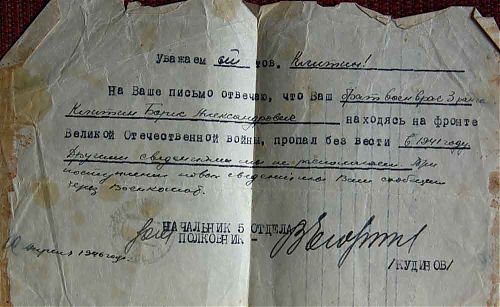 Уважаем ый тов. Клитин!
На Ваше письмо отвечаю, что Ваш брат воен врач 3 ранга
Клитин Борис Александрович находясь на фронте
Великой Отечественной войны, пропал без вести в 1941 году.
Другими сведениями мы не располагаем. При
поступлении новых сведений Вам сообщим
через Военкомат.
НАЧАЛЬНИК 5 ОТДЕЛА
ПОЛКОВНИК -
/КУДИНОВ/
апреля 1946 год.